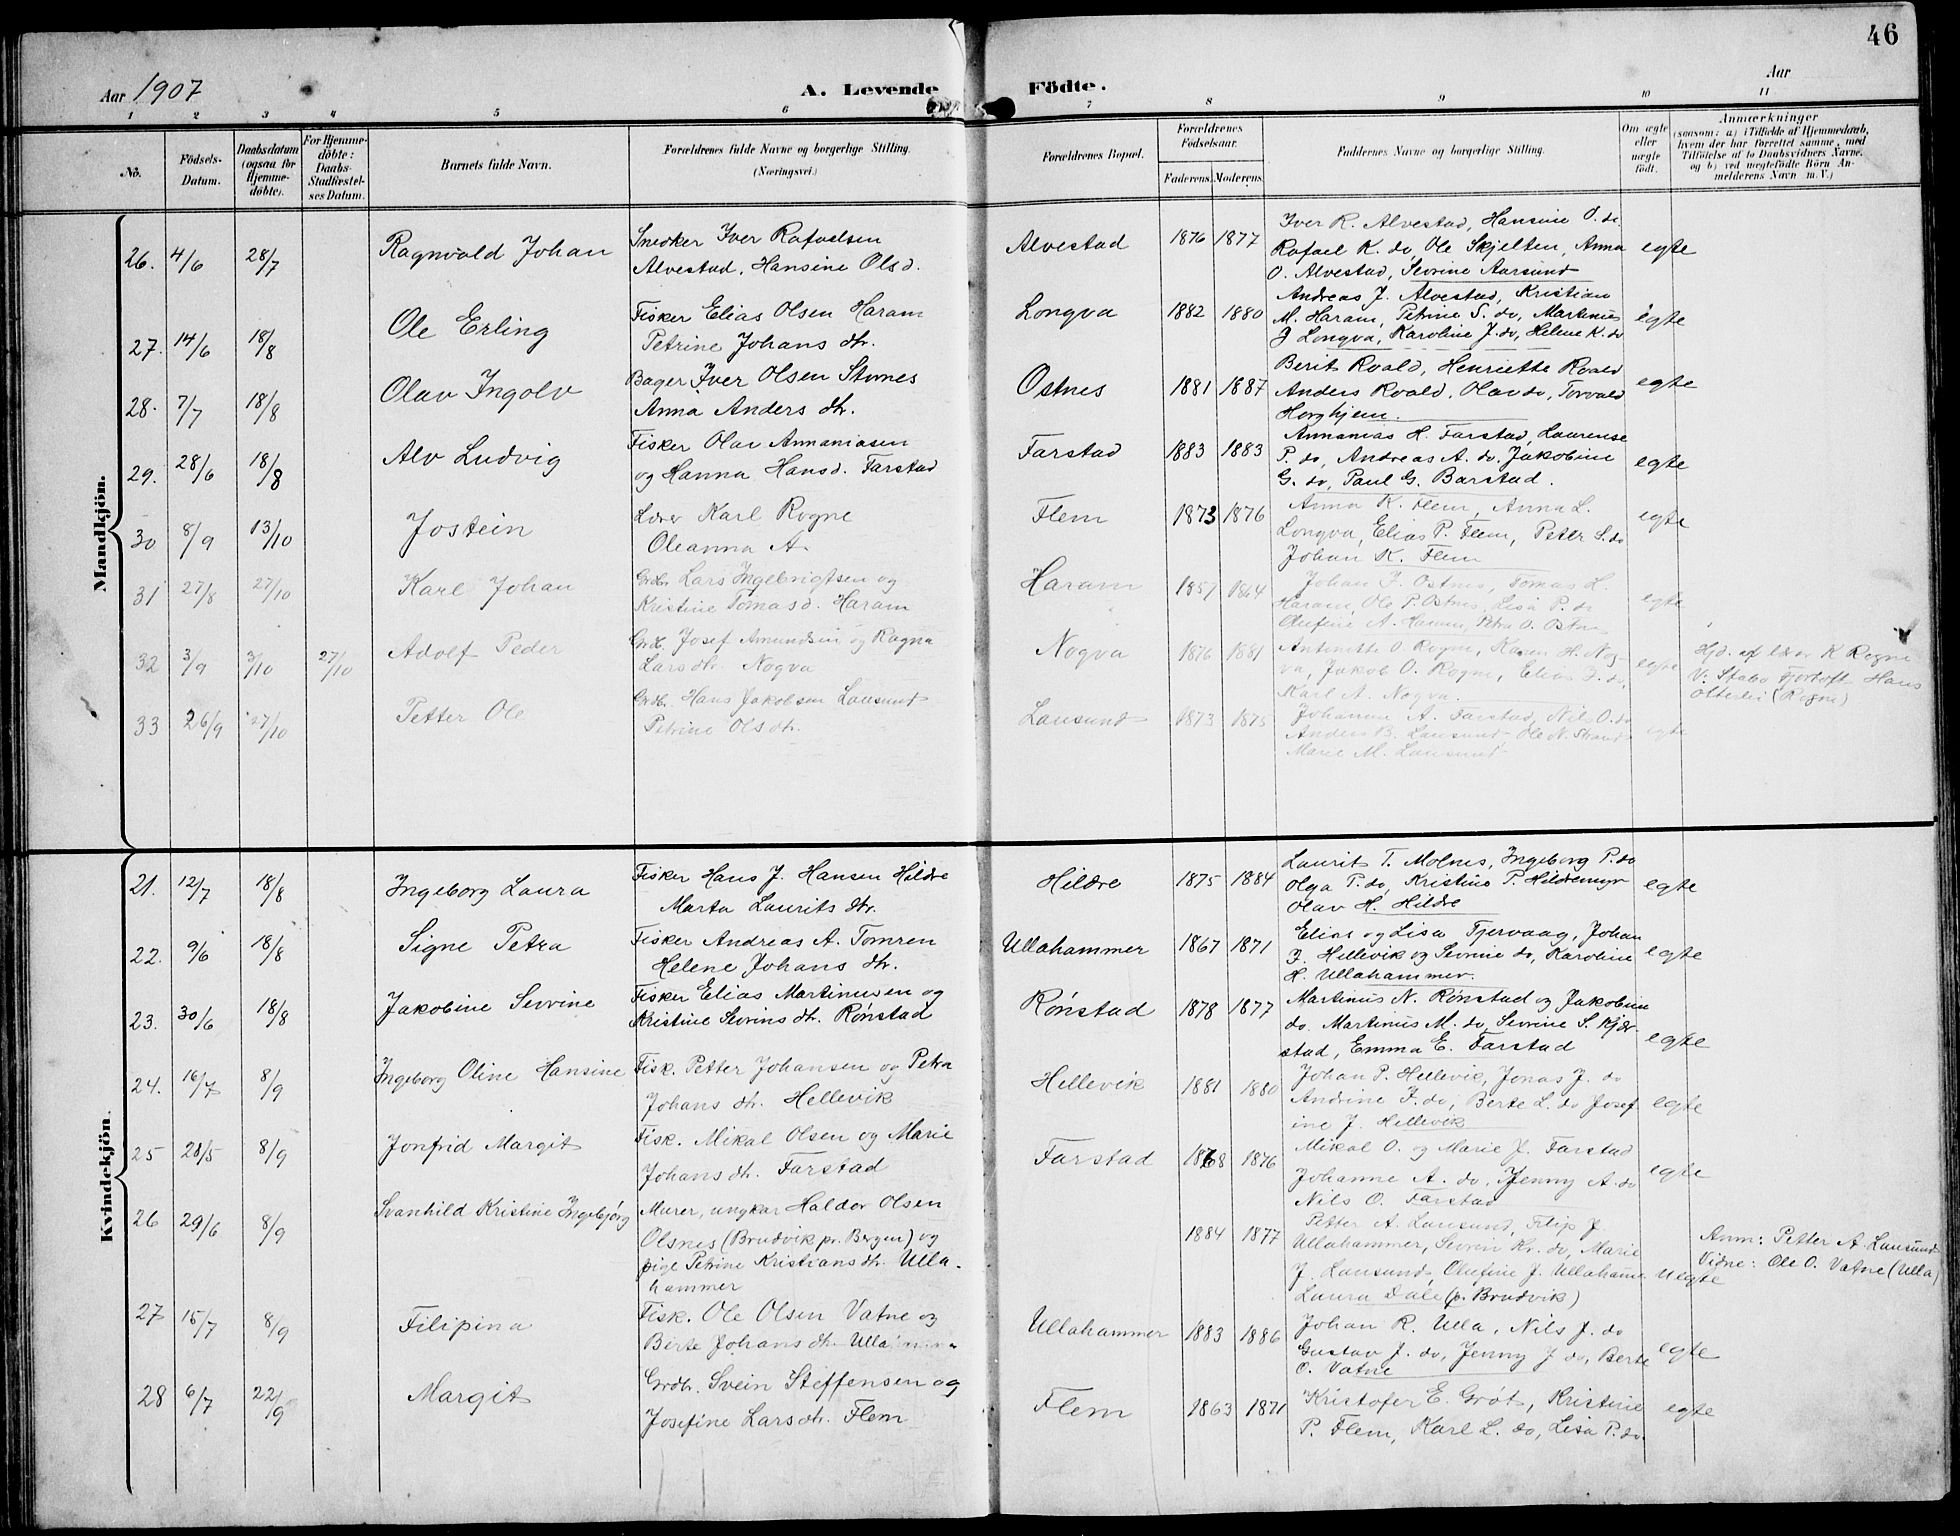 46
Aar 1907
A. Levende Födte.
Aar
1 2 3 4 5 6 7 8 9 10 11
No.
Födsels-Datum.
Daabsdatum (ogsaa for Hjemmedöbte).
For Hjemmedöbte: Daabs-Stadfæstelses Datum.
Barnets fulde Navn.
Forældrenes fulde Navne og borgerlige Stilling. (Næringsvei.)
Forældrenes Bopæl.
Forældrenes Födselsaar.
Faderens. Moderens.
Faddernes Navne og borgerlige Stilling.
Om ægte eller uægte födt.
Anmærkninger
(saasom: a) i Tilfælde af Hjemmedaab, hvem der har forrettet samme, med Tilföielse af to Daabsvidners Navne, og b) ved uegtefödte Börn Anmelderens Navn m. V.)
Mandkjön.
26. 4/6 28/7 Ragnvald Johan
Snedker Iver Rafaelsen
Alvestad, Hansine Olsd.
Alvestad 1876 1877
Iver R. Alvestad, Hansine O. do
Rafael K. do, Ole Skjelten, Anna
O. Alvestad, Sevrine Aarsund
egte
27. 14/6 18/8 Ole Erling
Fisker Elias Olsen Haram
Petrine Johans dtr.
Longva 1882 1880
Andreas J. Alvestad, Kristian
M. Haram, Petrine S. do, Martinus
J Longva, Karoline J. do, Helene K. do
egte
28. 7/7 18/8 Olav Ingolv
Bager Iver Olsen Stornes
Anna Anders dtr.
Ostnes 1881 1887
Berit Roald, Henriette Roald
Anders Roald, Olav do, Torvald
Horghjem.
egte
29. 28/6 18/8 Alv Ludvig
Fisker Olav Annaniasen
og Hanna Hansd. Farstad
Farstad 1883 1883
Annanias H. Farstad, Laurense
P. do, Andreas A. do, Jakobine
G. do, Paul G. Barstad.
egte
30 8/9 13/10 Jostein
Lærer Karl Rogne
Oleanna A.
Flem 1873 1876
Anna K. Flem, Anna L.
Longva, Elias P. Flem, Peter S. do
Johan K. Flem
egte
31 27/8 27/10 Karl Johan
Grdbr. Lars Ingebrigtsen og
Kristine Tomasd. Haram
Haram 1857 1864
Johan J. Ostnes, Tomas L.
Haram, Ole P. Ostnes, Lisa P. do
Olufine A. Haram, Petra O. Ostnes
egte
32 3/9 3/10 27/10 Adolf Peder
Grdb. Josef Amundsen og Ragna
Larsdtr. Nogva
Nogva 1876 1881
Antonette O. Rogne, Karen H. Nog-
va, Jakob O. Rogne, Elias J. do,
Karl A. Nogva.
egte
Hjd. af lærer K Rogne
V: Stabo Fjørtoft Hans
Otterlei (Rogne)
33 26/9 27/10 Petter Ole
Grdb. Hans Jakobsen Lausund
Petrine Ols dtr.
Lausund 1873 1875
Johanne A. Farstad, Nils O. do
Anders B. Lausund Ole N. Strand
Marie M. Lausund
egte
Kvindekjön.
21. 12/7 18/8 Ingeborg Laura
Fisker Hans J. Hansen Hildre
Marta Laurits dtr.
Hildre 1875 1884
Laurit T. Molnes, Ingeborg P. do
Olga P. do, Kristine P. Hildremyr
Olav H. Hildre
egte
22. 9/6 18/8 Signe Petra
Fisker Andreas A. Tomren
Helene Johans dtr.
Ullahammer 1867 1871
Elias og Lisa Tjervaag, Johan
J. Hellevik og Sevrine do, Karoline
H. Ullahammer.
egte
23. 30/6 18/8 Jakobine Sevrine
Fisker Elias Martinusen og
Kristine Sevrins dtr. Rønstad
Rønstad 1878 1877
Martinus N. Rønstad og Jakobine
do, Martinus M. do, Sevrine S. Kjer-
stad, Emma E. Farstad
egte
24. 16/7 8/9 Ingeborg Oline Hansine
Fisk. Petter Johansen og Petra
Johans dtr. Hellevik
Hellevik 1881 1880
Johan P. Hellevik, Jonas J. do
Andrine J. do, Berte L. do Josef-
ine J. Hellevik
egte
25 28/5 8/9 Jonfrid Margit
Fisk. Mikal Olsen og Marie
Johans dtr. Farstad
Farstad 1868 1876
Mikal O. og Marie J. Farstad
Johanne A. do, Jenny A. do
Nils O. Farstad
egte
26 29/6 8/9 Svanhild Kristine Ingebjørg
Murer, ungkar Haldor Olsen
Olsnes (Brudvik pr. Bergen) og
pige Petrine Kristians dtr. Ulla-
hammer
1884 1877
Petter A. Lausund, Filip J.
Ullahammer, Sevrin Kr. do, Marie
J. Lausund, Olufine J. Ullahamr
Laura Dale (p. Brudvik)
uegte
Anm: Petter A. Lausund
Vidne: Ole O. Vatne (Ulla)
27 15/7 8/9 Filipina
Fisk. Ole Olsen Vatne og
Berte Johans dtr. Ullahamm.
Ullahammer 1883 1886
Johan R. Ulla, Nils J. do
Gustav J. do, Jenny J do, Berte
O. Vatne
egte
28 6/7 22/9 Margit
Grdbr. Svein Steffensen og
Josefine Lars dtr. Flem
Flem 1863 1871
Kristofer E. Grøt, Kristine
P. Flem, Karl L. do, Lisa P. do
egte